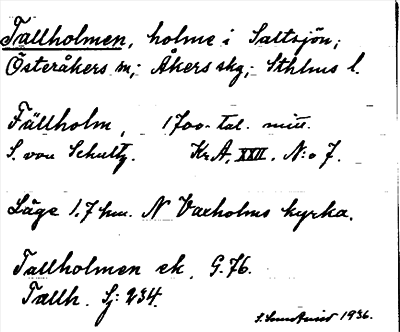 Tallholmen, holme i Saltsjön;
Österåkers sn; Åkers skg; Sthlms l.
Fällholm, 1700-tal. mitt.
S. von Schultz. Kr.A. XXII. N:o 7.
Läge 1,7 km. N Vaxholms kyrka.
Tallholmen ek. G.76.
Tallh. Sj: 234.
1936.